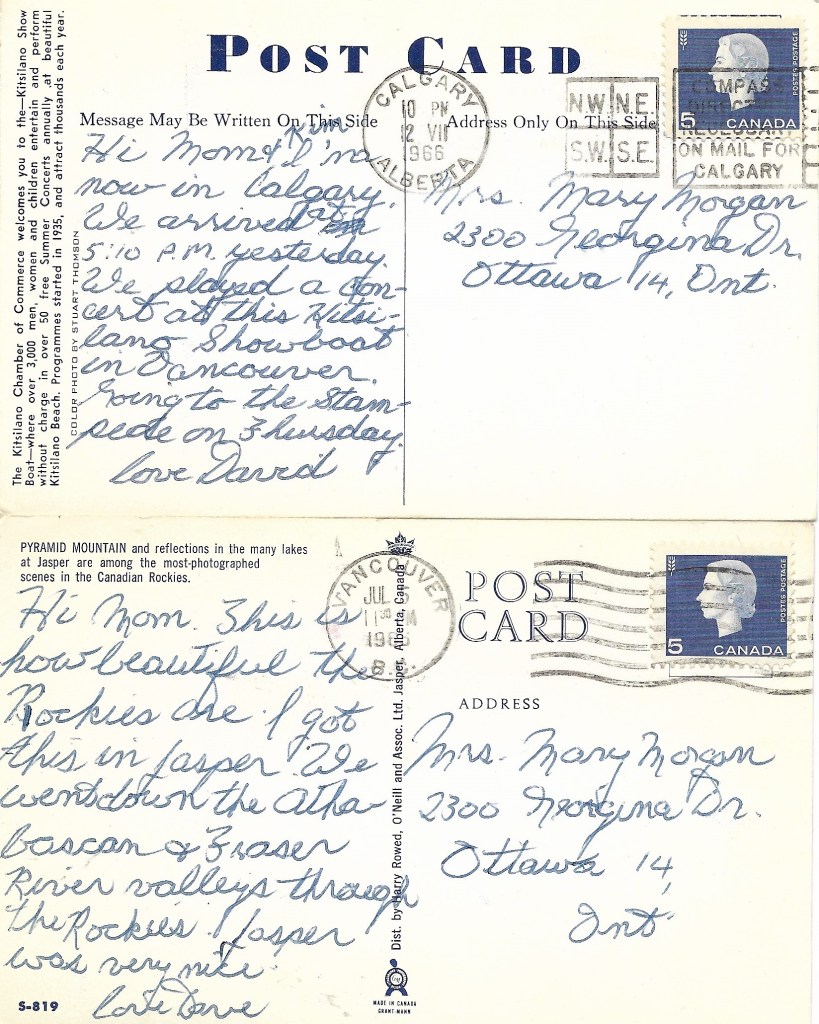 The Kitsilano Chamber of Commerce welcomes you to the—Kitsilano Show
Boat—where over 3,000 men, women and children entertain and perform
without charge in over 50 free Summer Concerts annually at beautiful
Kitsilano Beach. Programmes started in 1935, and attract thousands each year.
COLOR PHOTO BY STUART THOMSON
POST CARD
Message May Be Written On This Side
Address Only On This Side
CALGARY
10 PM
12 VII
1966
ALBERTA
N.W. N.E.
S.W. S.E.
COMPASS
DIRECTION
NECESSARY
ON MAIL FOR
CALGARY
POSTES POSTAGE
5 CANADA
Kim
Hi Mom & I'm
now in Calgary.
We arrived at
5:10 P.M. yesterday.
We played a con-
cert at this Kitsi-
lano Showboat
in Vancouver.
Going to the Stam-
pede on Thursday.
love David
Mrs. Mary Morgan
2300 Georgina Dr.
Ottawa 14, Ont.
PYRAMID MOUNTAIN and reflections in the many lakes
at Jasper are among the most-photographed
scenes in the Canadian Rockies.
Hi Mom. This is
how beautiful the
Rockies are. I got
this in Jasper. We
went down the Atha
bascan & Fraser
River valleys through
the Rockies. Jasper
was very nice
Love Dave
S-819
Dist. by Harry Rowed, O'Neill and Assoc. Ltd. Jasper, Alberta, Canada
MADE IN CANADA
GRANT-MANN
VANCOUVER
JUL
11 30 M
B.C.
POST
CARD
POSTES POSTAGE
5 CANADA
ADDRESS
Mrs. Mary Morgan
2300 Georgina Dr.
Ottawa 14,
Ont